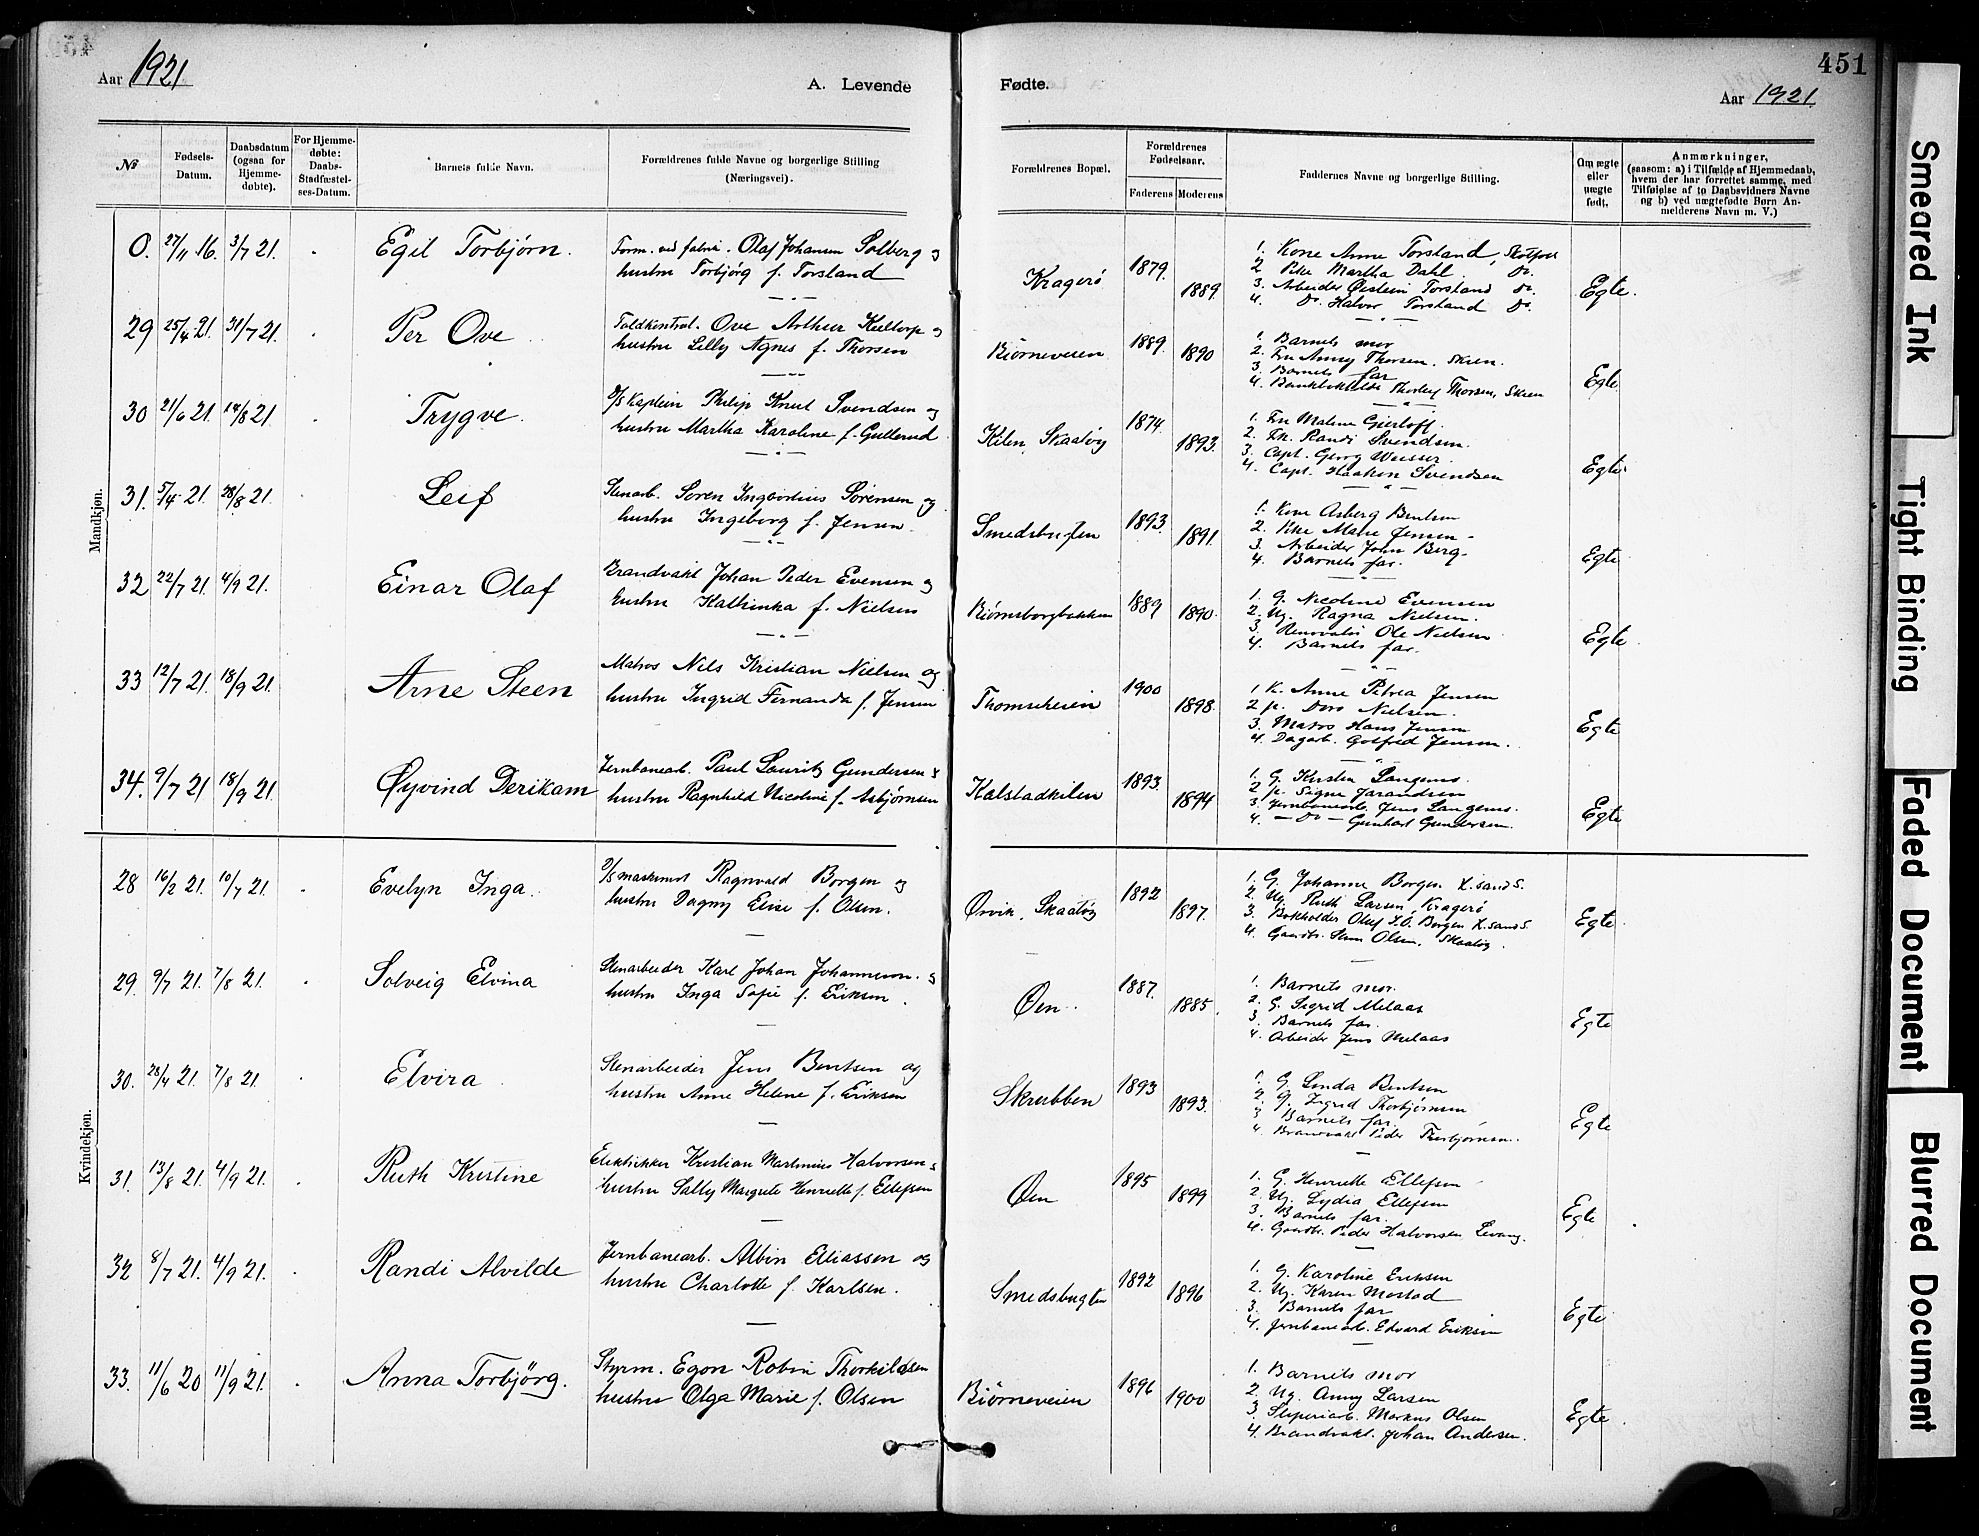 451
Aar 1921
A. Levende
Fødte.
Aar 1921
№
Fødsels-Datum.
Daabsdatum (ogsaa for Hjemme-døbte).
For Hjemme-døbte: Daabs-Stadfæstel-ses-Datum.
Barnets fulde Navn.
Forældrenes fulde Navne og borgerlige Stilling (Næringsvei).
Forældrenes Bopæl.
Forældrenes Fødselsaar.
Faderens
Moderens
Faddernes Navne og borgerlige Stilling.
Om ægte eller uægte født.
Anmærkninger, (saasom: a) i Tilfælde af Hjemmedaab, hvem der har forrettet samme, med Tilføielse af to Daabsvidners Navne og b) ved uægtefødte Børn An-melderens Navn m. V.)
Mandkjøn.
0. 27/11 16. 3/7 21. Egil Torbjørn. Form. ved fabrik. Olaf Johansen Solberg og
hustru Torbjørg f. Torsland
Kragerø 1879. 1889.
1. Kone Anne Torsland, Skotfoss
2. Pike Martha Dahl. Do.
3. Arbeider Øistein Torsland Do.
4. Do. Halvor Torsland Do.
Egte.
29 25/4 21. 31/7 21. Per Ove Toldkontrol. Ove Arthur Keltorp og
hustru Lilly Agnes f. Thorsen
Bjørneveien 1889. 1890
1. Barnets mor
2. Fru Anny Thorsen. Skien.
3. Barnets far
4. Thorleif Thorsen, Skien
Egte
30 21/6 21. 14/8 21. Trygve. D/S Kaptein Philip Knut Svendsen og
hustru Martha Karoline f. Gullerud
Kilen, Skaatøy 1874. 1893.
1. Fru Malene Gierloff.
2. Frk. Randi Svendsen.
3. Capt. Georg Weisser.
4. Capt. Haakon Svendsen
Egte
31. 5/4 21. 28/8 21. Leif Stenarb. Søren Ingvortius Sørensen og
hustru Ingeborg f. Jensen.
Smedsbugten 1893. 1891.
1. Kone Asberg Bentsen
2. Pike Malie Jensen
3. Arbeider John Berg.
4. Barnets far.
Egte
32 22/7 21. 4/9 21. Einar Olaf Brandvakt Johan Peder Evensen og
hustru Kathinka f. Nielsen
Bjørnsborgbakken 1889 1890.
1. G. Nicoline Evensen
2. Ug. Ragna Nielsen.
3. Ole Nielsen
4. Barnets far.
Egte
33 12/7 21. 18/9 21. Arne Steen Matros Nils Kristian Nielsen og
hustru Ingrid Fernanda f. Jensen
Thomseheien 1900 1898.
1. K. Anne Petrea Jensen
2. p. Dora Nielsen.
3. Matros Hans Jensen
4. Dagarb. Gotfred Jensen.
Egte
34. 9/7 21 18/9 21. Øyvind Derikam Jernbanearb. Paul Lauritz Gundersen &
hustru Ragnhild Nicoline f. Asbjørnsen
Kalstadkilen 1893. 1894
1. G. Kirsten Langems.
2. p. Signe Jarandsen
3. Jernbanearb. Jens Langems.
4. — Do — Gunhart Gundersen.
Egte
Kvindekjøn.
28 16/2 21. 10/7 21. Evelyn Inga. D/S maskinist Ragnvald Borgen og
hustru Dagny Elise f. Olsen.
Ørvik, Skaatøy 1892 1897.
1. G. Johanne Borgen K.sand S.
2. Ug. Ruth Larsen, Kragerø
3. Bokholder Oluf L.O. Borgen K.sand S.
4. Gaardbr. Olsen, Skaatøy.
Egte
29. 9/7 21. 7/8 21. Solveig Elvina Stenarbeider Karl Johan Johannesen. &
hustru Inga Sofie f. Eriksen.
Øen. 1887. 1885.
1. Barnets mor.
2. G. Sigrid Melaas
3. Barnets far.
4. Arbeider Jens Melaas
Egte
30. 28/4 21. 7/8 21. Elvira Stenarbeider Jens Bentsen og
hustru Anne Helene f. Eriksen
Skrubben 1893 1893.
1. G. Linda Bentsen
2. G. Ingrid Thorbjørnsen
3. Barnets far.
4. Brandvakt Peder Thorbjørnsen.
Egte
31. 13/8 21. 4/9 21. Ruth Kristine Elektriker Kristian Martinius Halvorsen &
hustru Sally Margrete Henriette f. Ellefsen
Øen 1895 1899
1. G. Henriette Ellefsen
2. Ug. Lydia Ellefsen
3. Barnets far.
4. Gaardbr. Peder Halvorsen Levang.
Egte
32 8/7 21. 4/9 21. Randi Alvilde Jernbanearb. Albin Eliassen og
hustru Charlotte f. Karlsen.
Smedsbugten 1892 1896
1. G. Karoline Eriksen
2. Ug. Karen Mostad
3. Barnets far
4. Jernbanearb. Edvard Eriksen
Egte
33. 11/6 20 11/9 21. Anna Torbjörg. Styrm. Egon Robin Thorkildsen
hustru Olga Marie f. Olsen
Bjørneveien 1896 1900
1. Barnets mor
2. Ug. Anny Larsen
3. Sliperiarb. Markus Olsen
4. Brandvakt. Johan Andersen.
Egte.
Smeared Ink
Tight Binding
Faded Document
Blurred Document